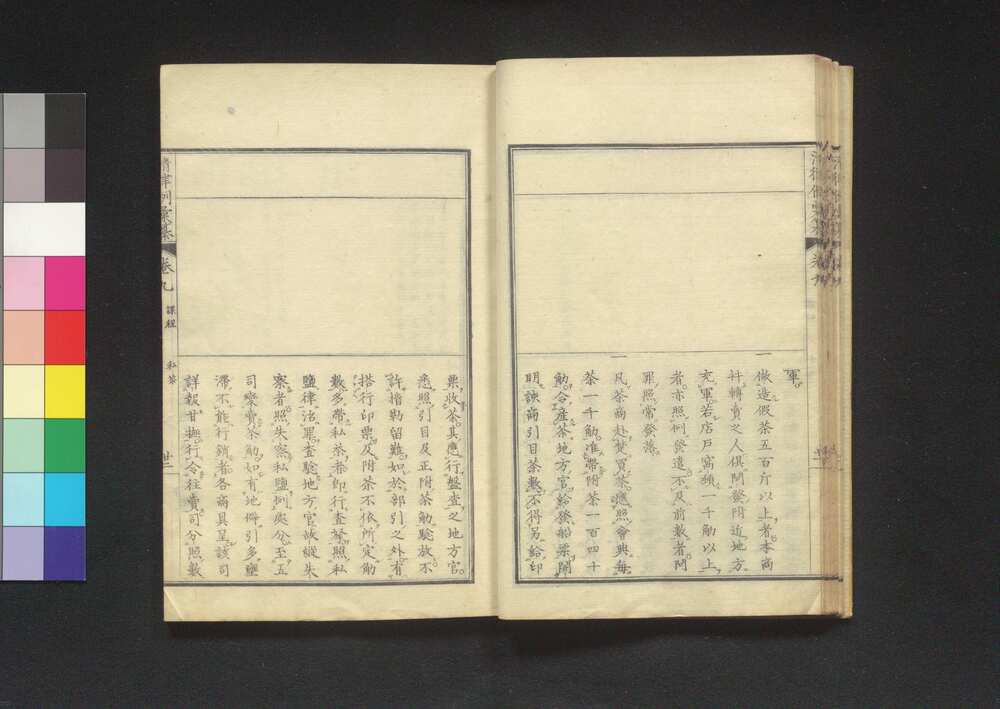 軍
一
做造假茶五百斤以上者本商
并轉賣之人俱問發附近地方
充軍若店戶窩頓一千觔以上
者亦照例發遣不及前數者問
罪照常發落
一
凡茶商赴楚買茶應照會典每
茶一千觔准帶附茶一百四十
觔令產茶地方官給發船票開
明該商引目茶數不得另給印
票收茶其應行盤查之地方官
悉照引目及正附茶觔驗放不
許揹勒留難如於部引之外有
搭行印票及附茶不依所定觔
數多帶私茶者即行查拏照私
鹽律治罪查驗地方官故縱失
察者照失察私鹽例處分至五
司變賣茶觔如有地僻引多壅
滯不能行銷者各商具呈該司
詳報甘撫行令往賣司分照數
清律例彙纂
卷九
課程
私茶
廿二